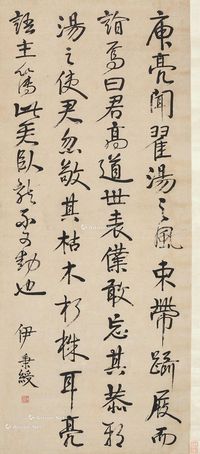 庾亮聞翟湯之風束帶躡屐而
詣焉曰君高道世表僕敢忘其恭耶
湯之使君忽敬其枯木朽株耳亮
語主簿此君臥龍不可動也
伊秉綬